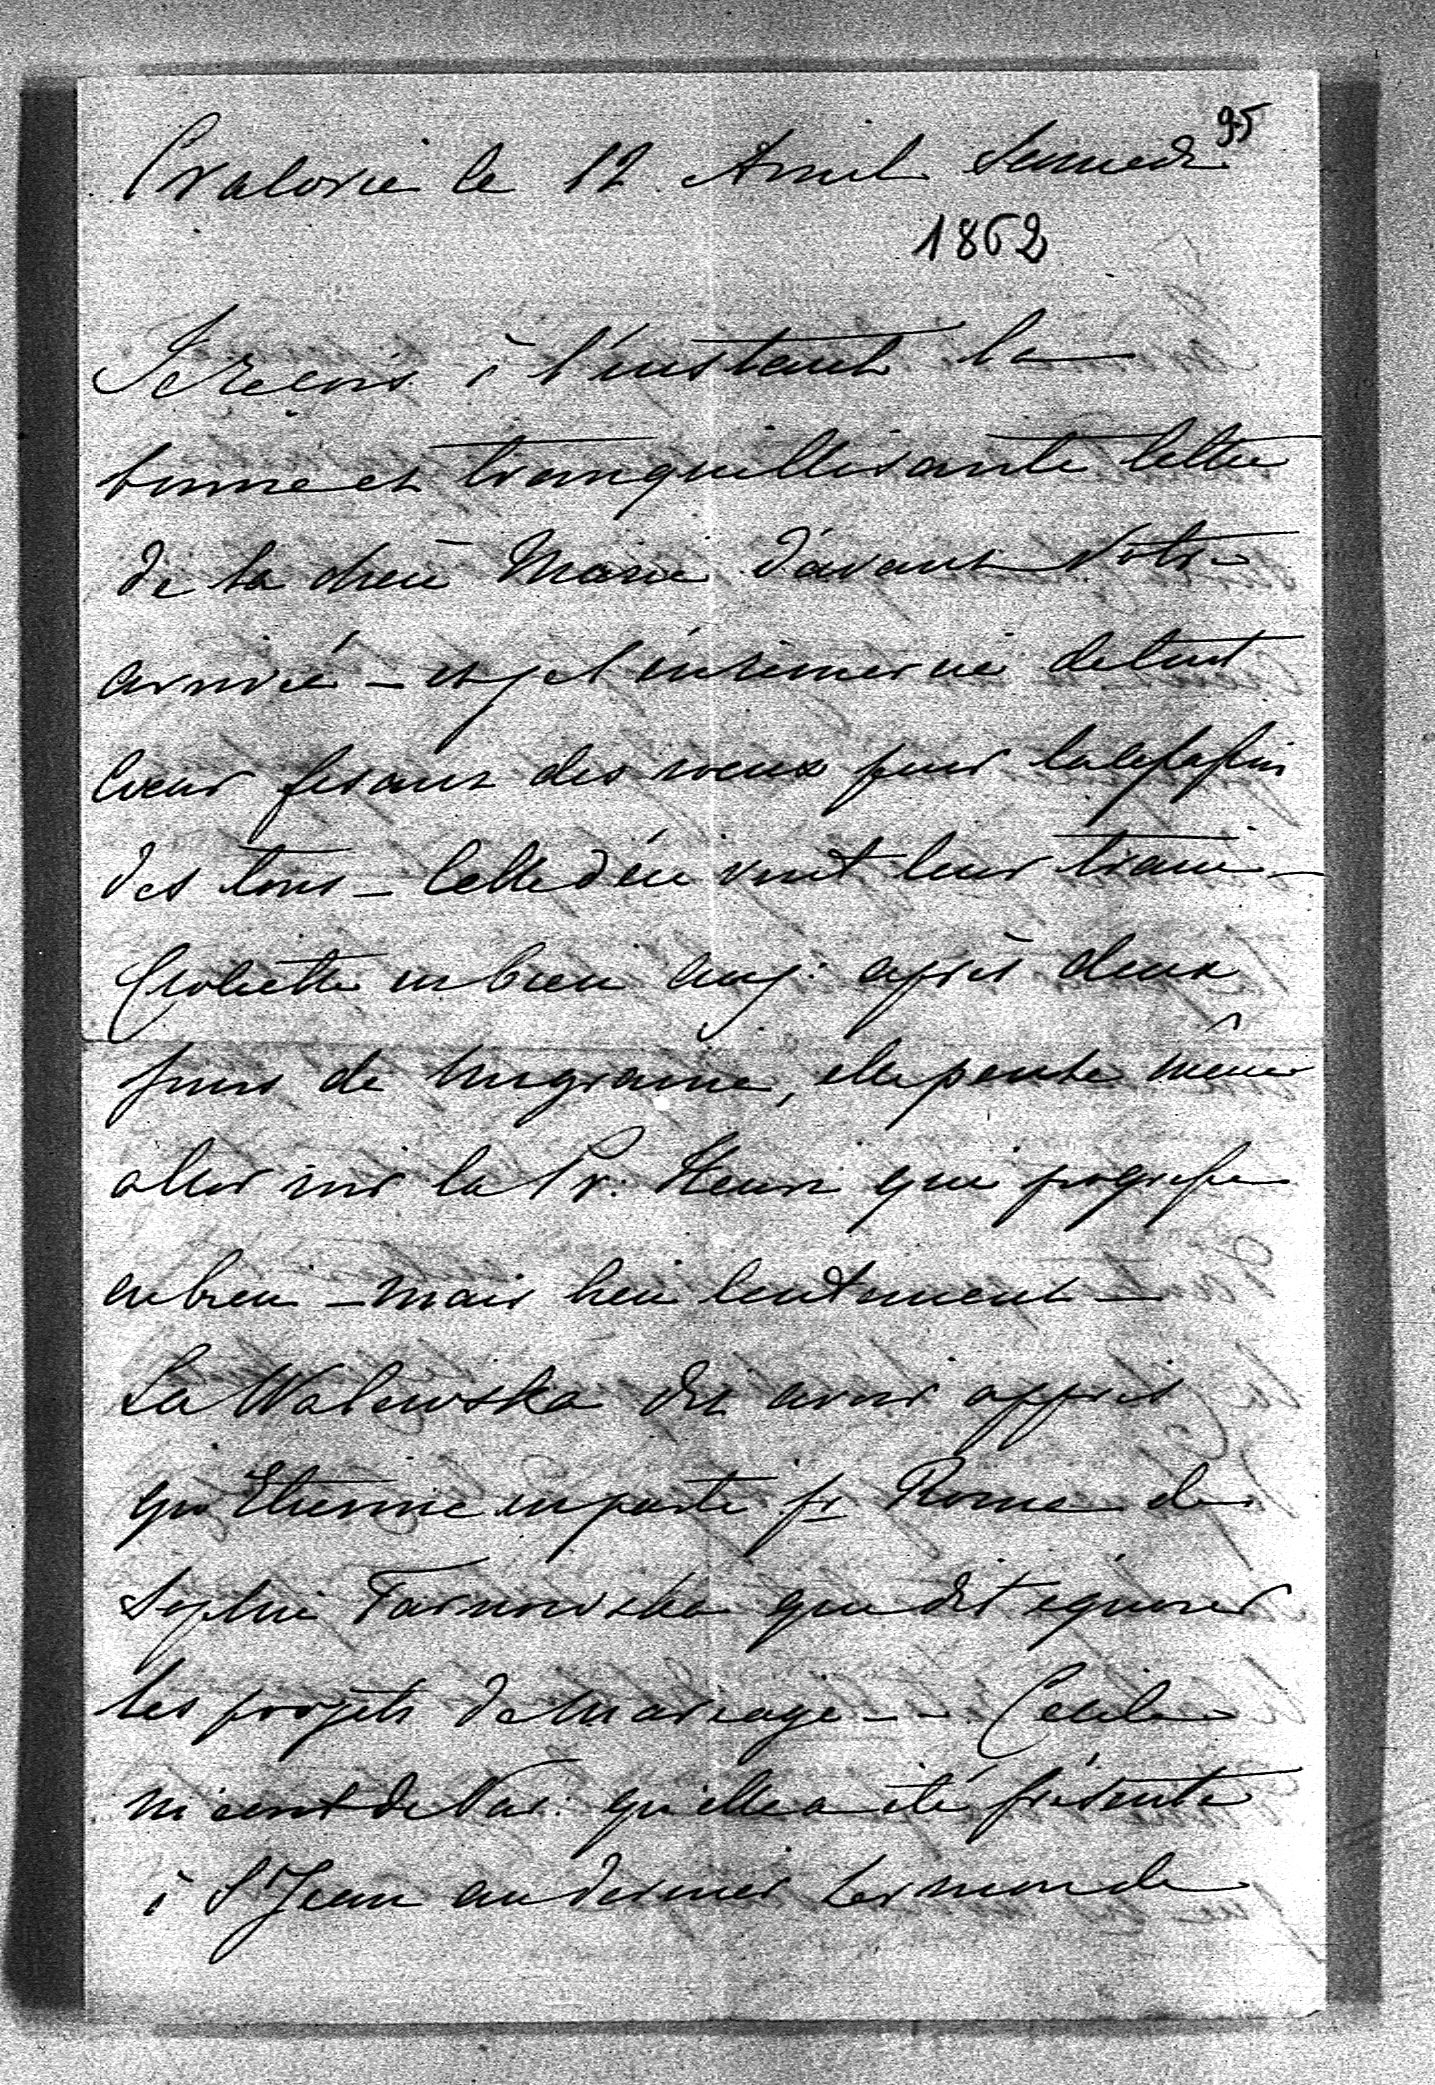 95
Cracovie le 12 Avril Samedi
1862
Je reçois à l'instant la
bonne et tranquillisante lettre
de la chère Marie d'avant Votre
arrivée – et je l'en remercie de tout
cœur fesant des vœux pour
des tous – Celle d'ici vont leur train –
en bien auj: après deux
jours de migraine, elle pense même
aller voir la Pr. Henri qui progresse
en bien – mais bien lentement –
La Walewska dit avoir appris
qu'Etienne en parte pr Rome de
Sophie Tarnowska que dit ignorer
les projets de mariage – – Cecile
m'écrit de Var: qu'elle a été présente
à St Jean au dernier sermon de